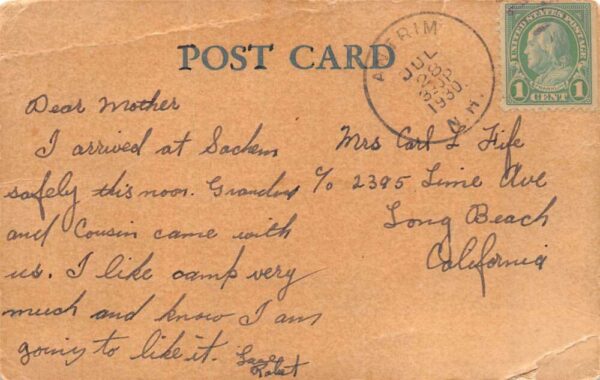 POST CARD
ANTRIM
JUL
28
3-30P
1930
N.H.
UNITED STATES POSTAGE
1 CENT 1
Dear Mother
I arrived at Sachem
safely this noon. Grandma
and Cousin came with
us. I like camp very
much and know I am
going to like it. Love
Robert
Mrs Carl L Fife
c/o 2395 Lime Ave
Long Beach
California